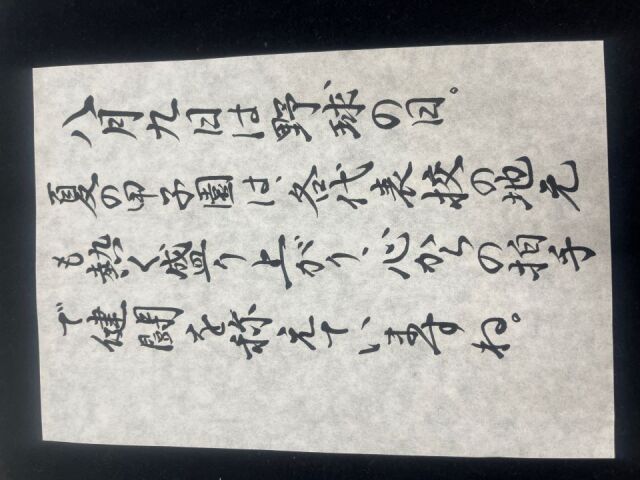 八月九日は野球の日。
夏の甲子園は、各代表校の地元
も熱く盛り上がり、心からの拍手
で健闘を称えていますね。